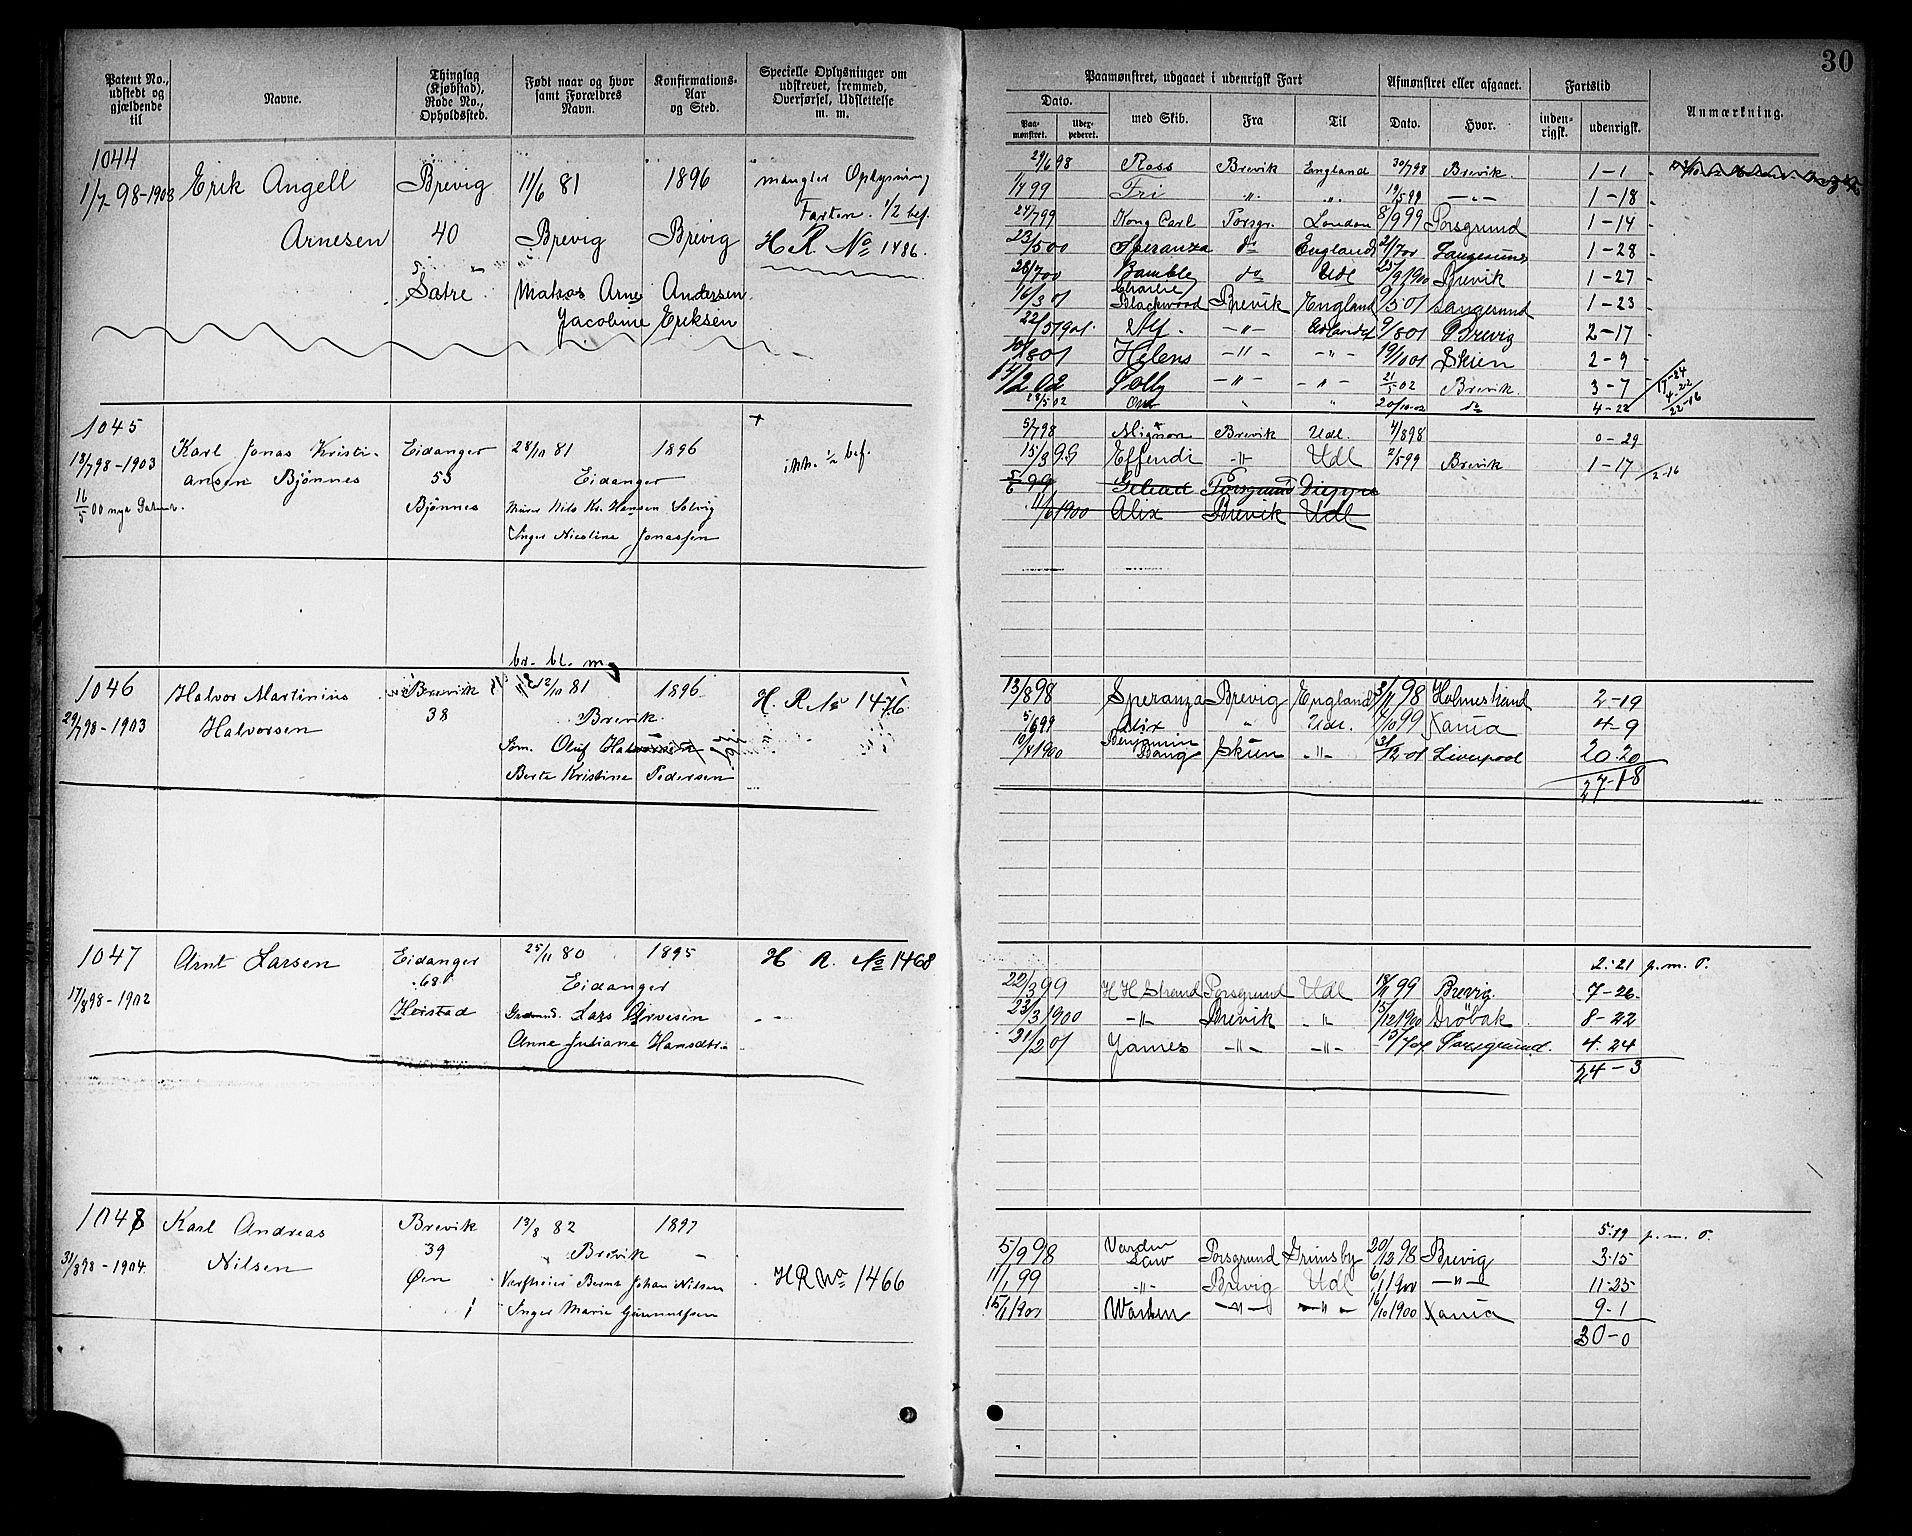 30
Patent No., udstedt og gjældende til
Navne.
Thinglag (Kjøbstad), Rode No., Opholdssted.
Født naar og hvor samt Forældres Navn.
Konfirmations-Aar og Sted.
Specielle Oplysninger om udskrevet, fremmed, Overførsel, Udslettelse m. m.
Paamønstret, udgaaet i udenrigsk Fart
Afmønstret eller afgaaet.
Fartstid
Anmærkning.
Dato.
Paa-mønstret.
med Skib.
Fra
Til
Dato.
Hvor.
inden-rigsk.
udenrigsk.
1044
1/7 98-1903 Erik Angell Brevig 11/6 81 1896 mangler Oplysning
Farten. 1/2 bef.
Arnesen 40 Brevig Brevig H R. No 1486.
Matros Arne Andersen
Jacobine Eriksen
29/6 98 Ross Brevik England 30/7 98 Brevik. 1-1
1/4 99 Fri " " 19/5 99 -"- 1-18
24/7 99 Kong Carl Porsgr. London 8/9 99 Porsgrund 1-14
23/5 00 Speranza do England 21/7 00 Langesund 1-28
28/7 00 Bamble do Udl 25/9 1900 Brevik 1-27
16/3 01 Charlie Blackwood Brevik England /5 01 Langesund 1-23
22/5 1901. Alf. -"- Udlandet 9/8 01 Brevig 2-17
10/8 01 Helens -"- -"- 19/10 01 Skien 2-9
14/2 02 Polly -"- -"- 21/5 02 Brevik. 3-7 17-24
28/5 02 " " 20/10-02 do 4-22 4-22
22-16
1045 +
18/7 98-1903 Karl Jonas Kristi- Eidanger 28/10 81 1896 ikke 1/2 bef.
ansen Bjønnes 53 Eidanger
16/5 00 nye Patent. Bjønnes Nils Kr. Hansen Solvig
Inger Nicoline Jonassen
5/7 98 Mignon Brevik Udl. 4/8 98 0-29
15/3 99 Effendi -"- Udl 2/5 99 Brevik 1-17 2-16
5/6 99 Gilead Porsgrund Dieppe
11/6 1900 Alix Brevik Udl
br. bl. m
1046 Halvor Martinius Brevik 12/10 81 1896 H. R. No 1476
29/7 98-1903 Halvorsen 38 Brevik
Søm. Oluf Halvorsen
Berte Kristine Pedersen
13/8 98 Speranza Brevig England 3/11 98 Holmestrand 2-19
5/6 99 Alix " Udl. 4/10 99 Xania 4-9
10/4 1900 Benjamin Bang Skien -"- 3/12-01 Liverpool 20.20
27-18
1047 Arnt Larsen Eidanger 25/11 80 1895 H R. No 1468
17/8 98-1902 68 Eidanger
Heistad Lars Arvesen - -
Anne Juliane Hansdtr.
2:21 p.m.O.
22/3 99 H H Strand Porsgrund Udl 18/11 99 Brevig. 7-26.
23/3 1900 -"- Brevik -"- 15/12 1900 Drøbak 8-22
21/2 01 James -"- -"- 15/7 01 Porsgrund. 4.24
24-3
1048 Karl Andreas Brevik 13/8 82 1897
31/8 98-1904. Nilsen 39 Brevik -
Øen Bernt Johan Nilsen HR No 1466
Inger Marie Gunnulfsen
5:19 p.m.O.
5/9 98 Varden Law Porsgrund Grimsby 20/12 98 Brevig 3:15
11/1 99 -"- Brevig Udl 6/1 1900 -"- 11-25
15/1 1900 -"- -"- 16/10 1900 Xania 9-1
30-0